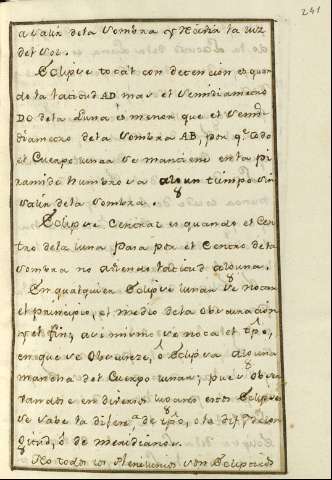 241
a salir dela Sombra y Recivir la luz
del Sol.
Eclipse total con detencion es quan
do la latitud AD mas el Semidiametro
DO dela Luna es menor que el Semi
diametro dela Sombra AB, por q.e todo
el Cuerpo lunar se mantiene en la pi
ramide Humbrosa algun tiempo sin
salir dela Sombra.
Eclipse Central es quando el Cen
tro dela luna Pasa por el Centro dela
Sombra no aviendo latitud alguna.
En qualquier Eclipse lunar se nota
el principio, el medio dela Obscuracion
y el fin, asi mismo se nota el tpo,
en que se Obscureze, ô Eclipsa alguna
mancha del Cuerpo lunar; pues Obser
vandose en diversos lugares estos Eclipses
se sabe la diferen.a de tpo, ô la dif. de Lon
gitud, ô de meridianos.
No todos los Plenilunios son Eclipticos